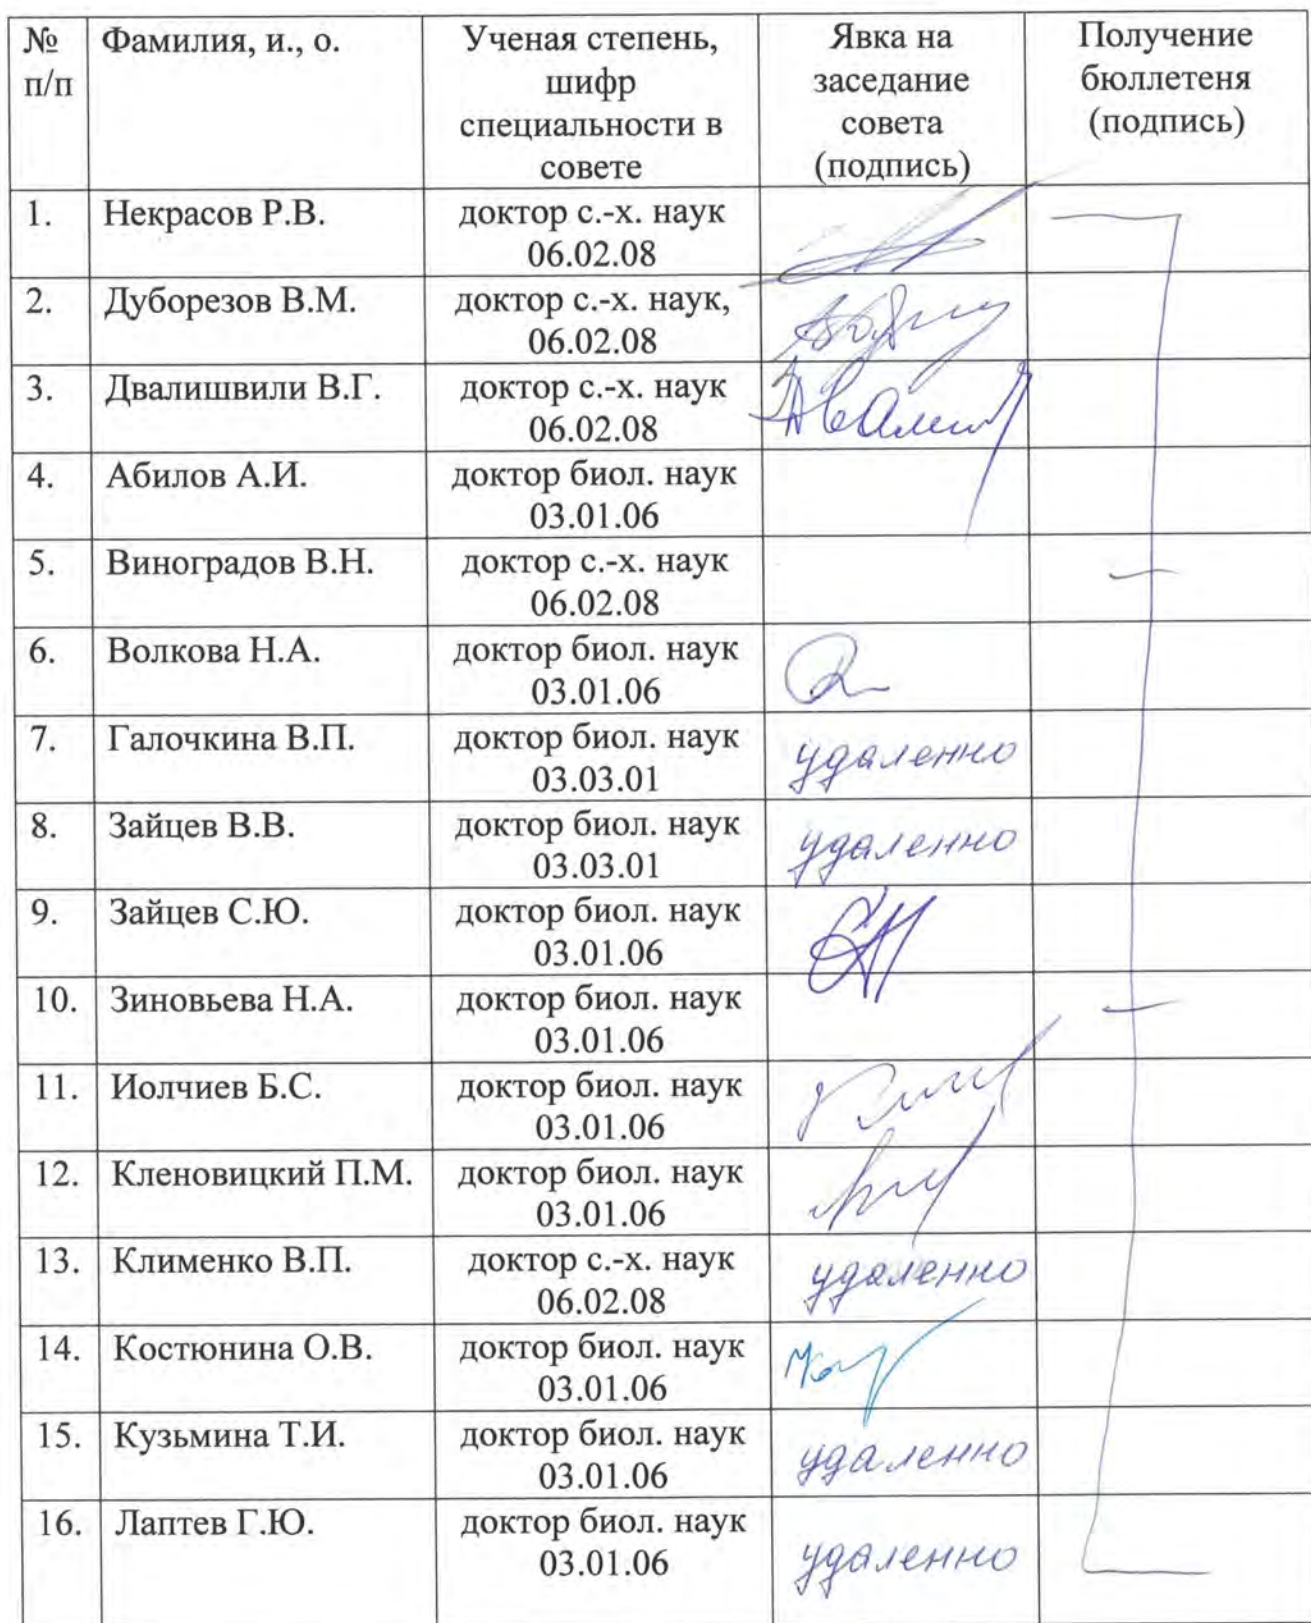 № п/п Фамилия, и., о. Ученая степень, шифр специальности в совете Явка на заседание совета (подпись) Получение бюллетеня (подпись)
1. Некрасов Р.В. доктор с.-х. наук
06.02.08
2. Дуборезов В.М. доктор с.-х. наук,
06.02.08
3. Двалишвили В.Г. доктор с.-х. наук
06.02.08
4. Абилов А.И. доктор биол. наук
03.01.06
5. Виноградов В.Н. доктор с.-х. наук
06.02.08
6. Волкова Н.А. доктор биол. наук
03.01.06
7. Галочкина В.П. доктор биол. наук удаленно
03.03.01
8. Зайцев В.В. доктор биол. наук удаленно
03.03.01
9. Зайцев С.Ю. доктор биол. наук
03.01.06
10. Зиновьева Н.А. доктор биол. наук
03.01.06
11. Иолчиев Б.С. доктор биол. наук
03.01.06
12. Кленовицкий П.М. доктор биол. наук
03.01.06
13. Клименко В.П. доктор с.-х. наук удаленно
06.02.08
14. Костюнина О.В. доктор биол. наук
03.01.06
15. Кузьмина Т.И. доктор биол. наук удаленно
03.01.06
16. Лаптев Г.Ю. доктор биол. наук удаленно
03.01.06